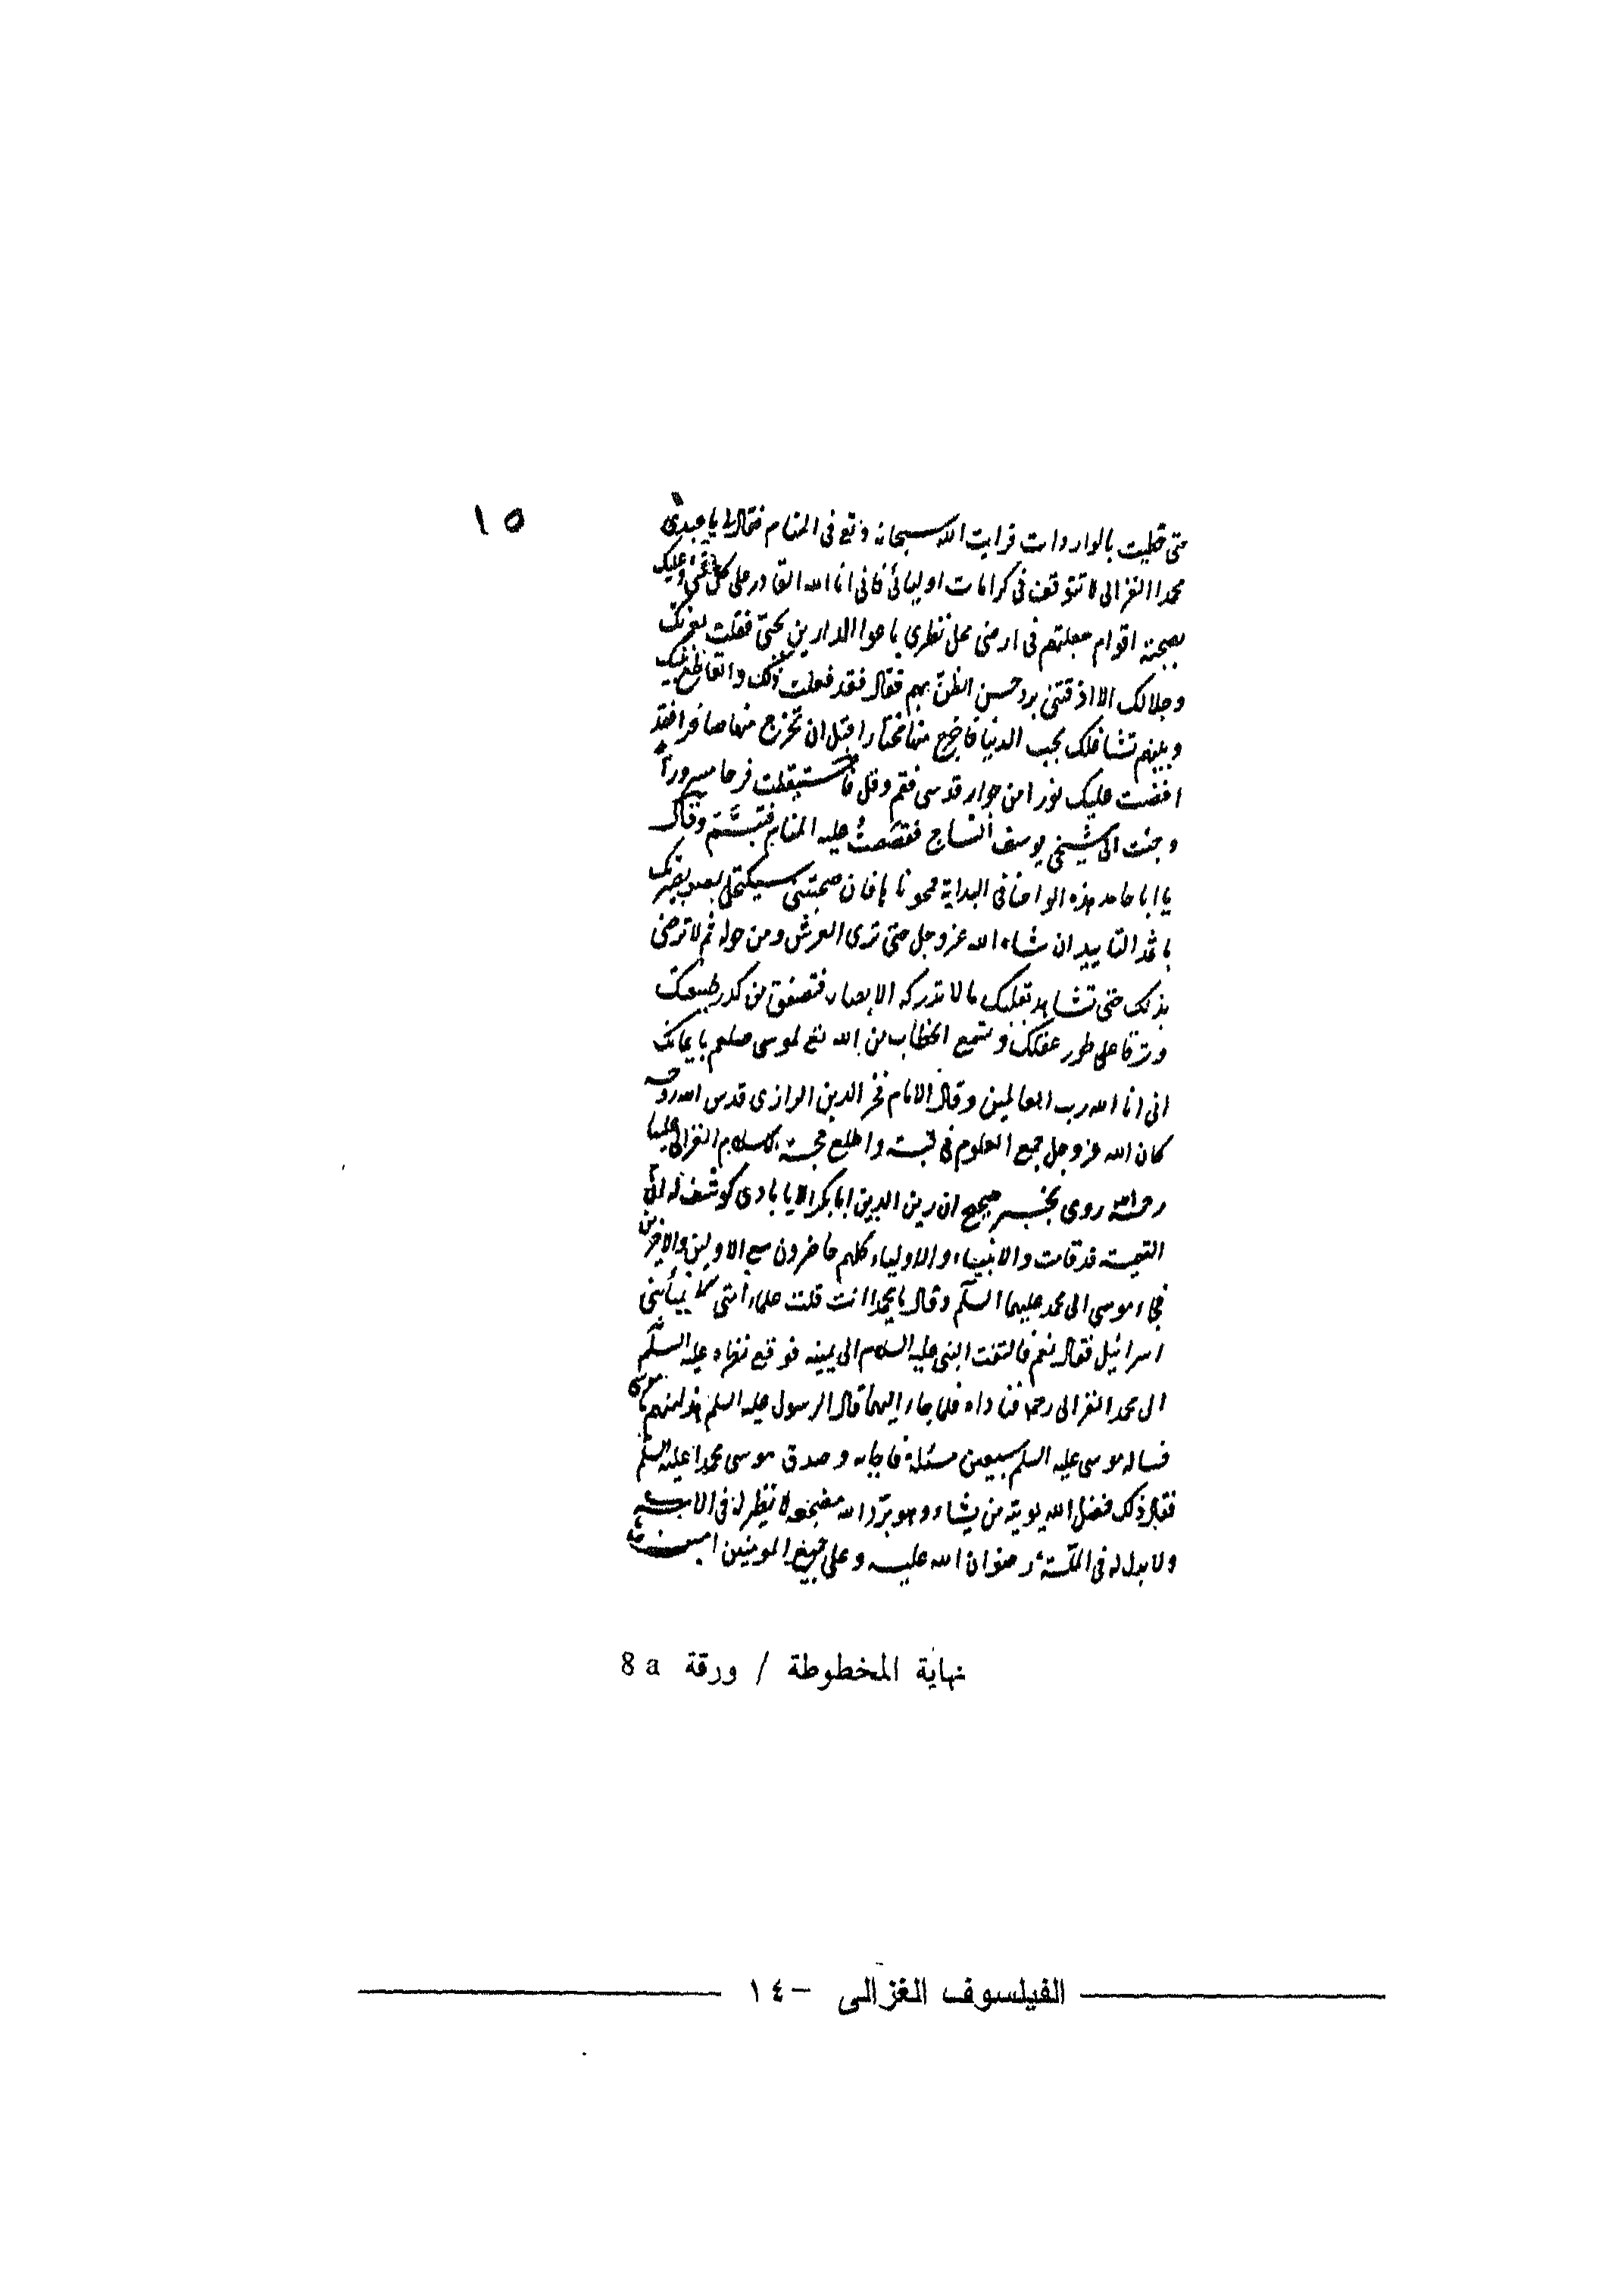 ١٥
حتى حظيت بالواردات فرايت الله سبحانه وتع فى المنام فقال لى يا عبدى
محمدا الغزالى لا تتوقف فى كرامات اوليائى فانى انا الله القادر على كل شئ وعليك
بصحبة اقوام جعلتهم فى ارضى محل نظرى باعوا الدارين بحبى فقلت بعزتك
وجلالك الا اذقتنى برد حسن الظن بهم فقال فقد فعلت ذلك والقاطع بينك
وبينهم تشاغلك بحب الدنيا فاخرج منها مختارا قبل ان تخرج منها صاغرا فقد
افضت عليك نورا من جوار قدسى فقم وقل فاستيقظت فرحا مسرورا
وجئت الى شيخى يوسف النساج فقصصت عليه المنام فتبسم وقال
يا ابا حامد هذه الواحنا فى البداية محونا فان صحبتنى سيكتحل بصر بصيرتك
باثمد التاييد ان شاء الله عز وجل حتى ترى العرش ومن حوله ثم لا ترضى
بذلك حتى تشاهد بقلبك ما لا تدركه الابصار فتصفق من كدر طبيعتك
وترقا على طور عقلك وتسمع الخطاب من الله تع لموسى صلعم بايمانك
انى انا الله رب العالمين وقال الامام فخر الدين الرازى قدس الله روحه
كان الله عز وجل جمع العلوم فى قبة واطلع حجة الاسلام الغزالى عليها
رحمه الله روى بخبر صحيح ان زين الدين ابا بكر الايابادى كوشف له ان
القيمة قد قامت والانبياء والاولياء كلهم حاضرون مع الاولين والاخرين
فجاء موسى الى محمد عليهما السلم وقال يا محمد انت قلت علماء امتى كانبيا بنى
اسرائيل فقال نعم فالتفت النبى عليه السلام الى يمينه فوقع نظره عليه السلم
الى محمد الغزالى رحمه فناداه فلما جاء اليهما قال الرسول عليه السلم هذا منهم يا موسى
فساله موسى عليه السلم سبعين مسئلة فاجابه وصدق موسى محمدا عليه السلم
فقال ذلك فضل الله يوتيه من يشاء وهو برد الله مضجعه لا نظير له فى الامة
ولا بدل له فى الملة رضوان الله عليه وعلى جميع المومنين امين
نهاية المخطوطة / ورقة 8 a
الفيلسوف الغزالى -١٤